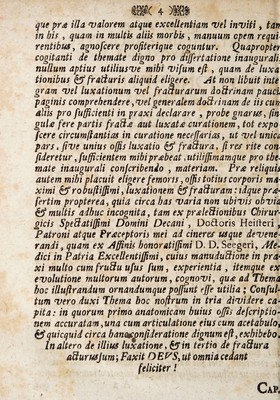 4
que præ illa valorem atque excellentiam vel inviti, tam
in his, quam in multis aliis morbis, manuum opem requi-
rentibus, agnoscere profiterique coguntur. Quapropter
cogitanti de themate digno pro dissertatione inaugurali,
nullum aptius utiliusve mihi visum est, quam de luxa-
tionibus & fracturis aliquid eligere. At non libuit inte-
gram vel luxationum vel fracturarum doctrinam pauci
paginis comprehendere, vel generalem doctrinam de iis cum
aliis pro sufficienti in praxi declarare, probe gnarus, sin-
gulæ fere partis fractæ aut luxatæ curationem, tot expo-
scere circumstantias in curatione necessarias, ut vel unica
pars, sive unius ossis luxatio & fractura, si res rite con-
sideretur, sufficientem mihi præbeat, utilissimamque pro the-
mate inaugurali conscribendo, materiam. Præ reliquis
autem mihi placuit eligere femoris, ossis totius corporis ma-
ximi & robustissimi, luxationem & fracturam: idque præ-
sertim propterea, quia circa has varia non ubivis obvia
& multis adhuc incognita, tam ex prælectionibus Chirur-
gicis Spectatissimi Domini Decani, Doctoris Heisteri,
Patroni atque Præceptoris mei ad cineres usque devene-
randi, quam ex Affinis honoratissimi D. D. Seegeri, Me-
dici in Patria Excellentissimi, cuius manuductione in pra-
xi multo cum fructu usus sum, experientia, itemque ex
evolutione multorum autorum, cognovi, quæ ad Thema
hoc illustrandum ornandumque possunt esse utilia; Consul-
tum vero duxi Thema hoc nostrum in tria dividere ca-
pita: in quorum primo anatomicam huius ossis descriptio-
nem accuratam, una cum articulatione eius cum acetabulo,
& quicquid circa hanc consideratione dignum est, exhibebo.
In altero de illius luxatione, & in tertio de fractura
acturus sum; Faxit DEVS, ut omnia cedant
feliciter!
CAP.